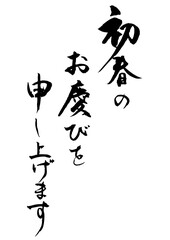 初春の
お慶びを
申し上げます